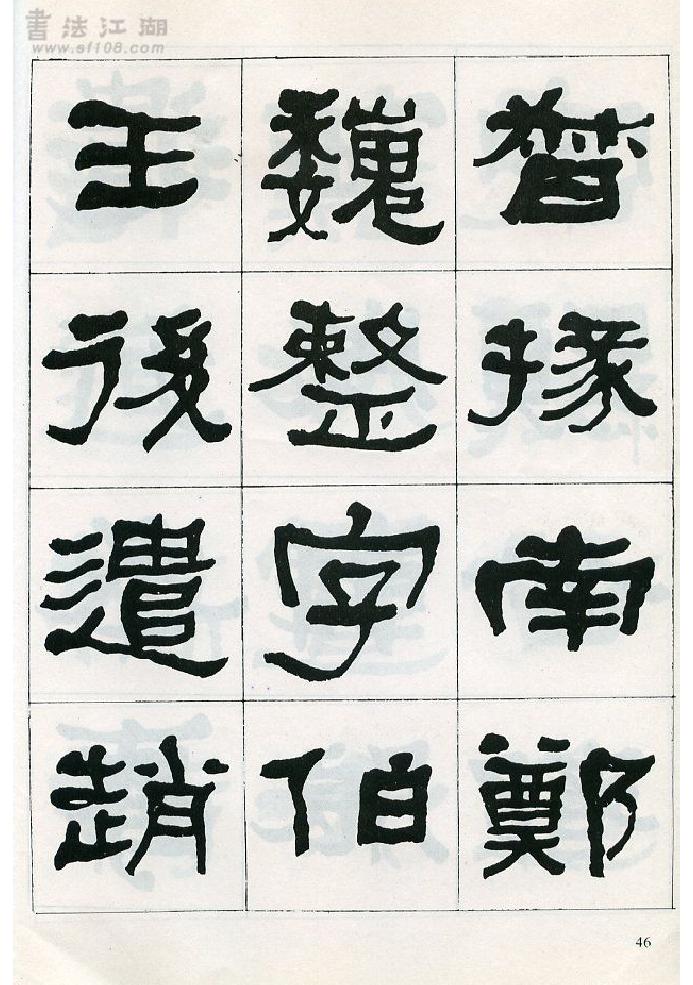 書法江湖
www.sf108.com
督掾南鄭
魏整字伯
王後遣趙
46